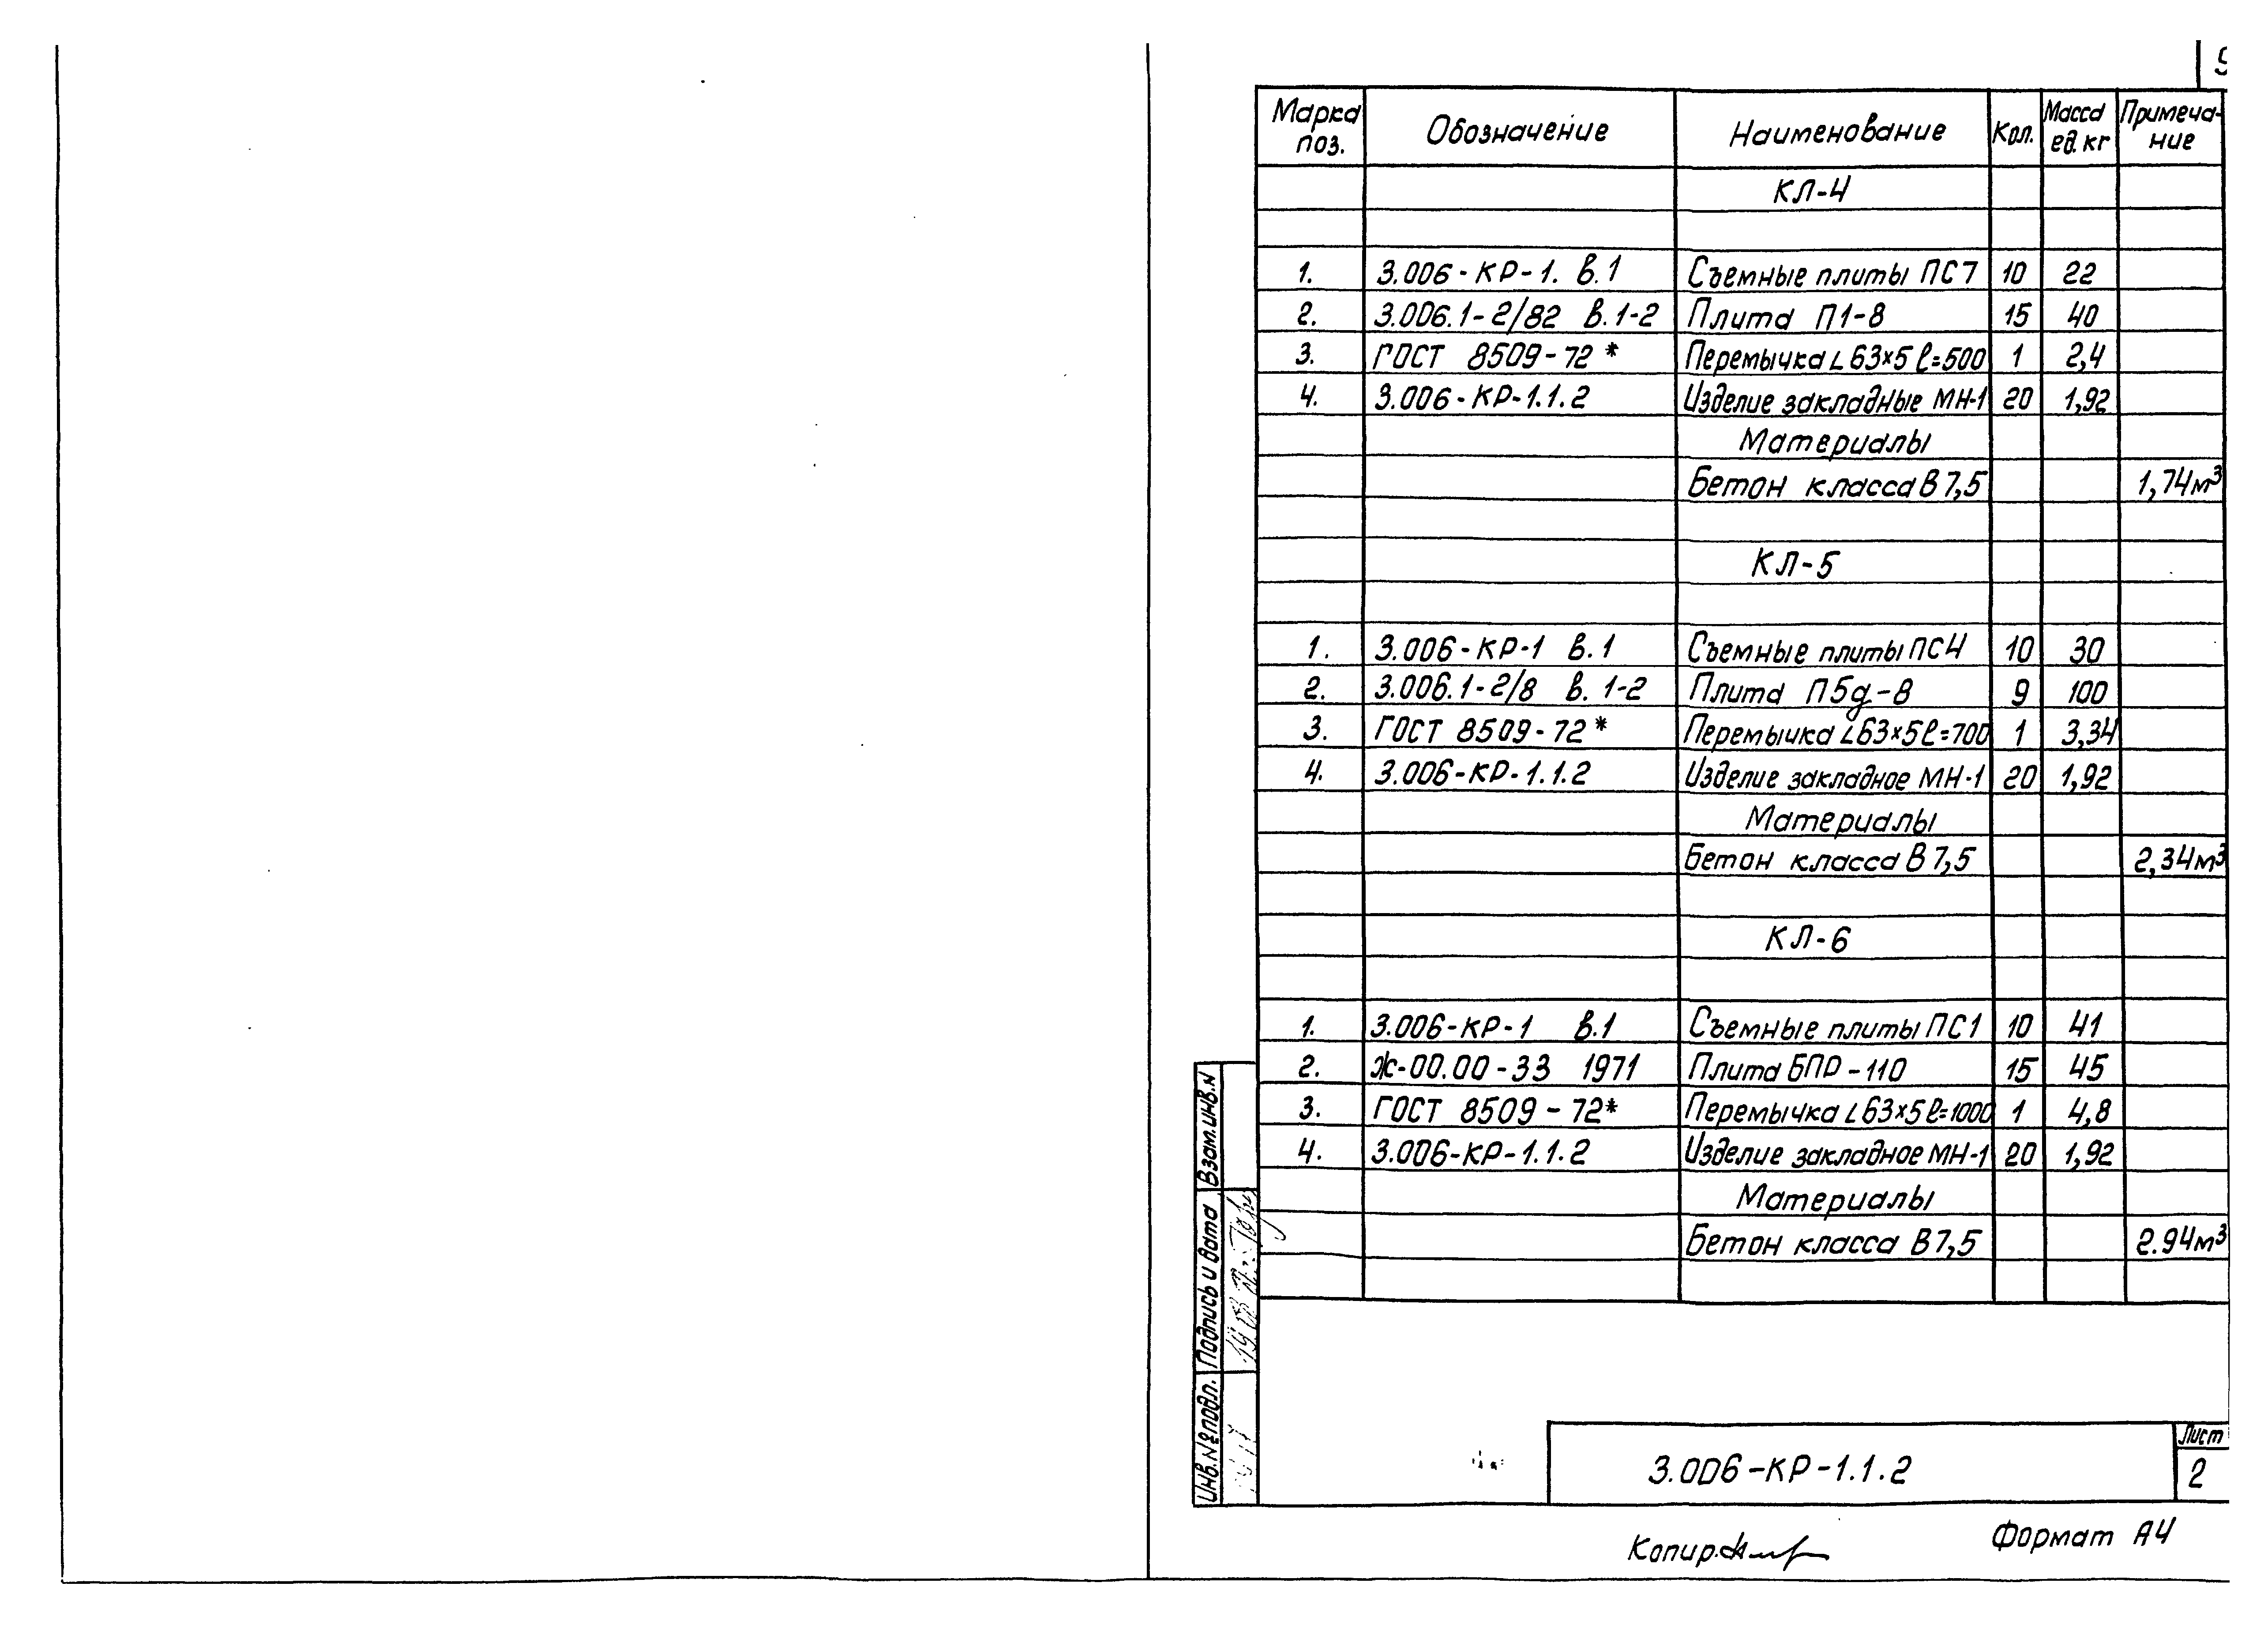 Марка поз. Обозначение Наименование Кол. Масса ед. кг Примеча-ние
КЛ-4
1. 3.006-КР-1. В.1 Съемные плиты ПС7 10 22
2. 3.006.1-2/82 В.1-2 Плита П1-8 15 40
3. ГОСТ 8509-72* Перемычка L63×5 ℓ=500 1 2,4
4. 3.006-КР-1.1.2 Изделие закладные МН-1 20 1,92
Материалы
Бетон класса В7,5 1,74м³
КЛ-5
1. 3.006-КР-1 В.1 Съемные плиты ПС4 10 30
2. 3.006.1-2/8 В. 1-2 Плита П5д-8 9 100
3. ГОСТ 8509-72* Перемычка L63×5 ℓ=700 1 3,34
4. 3.006-КР-1.1.2 Изделие закладное МН-1 20 1,92
Материалы
Бетон класса В7,5 2,34м³
КЛ-6
1. 3.006-КР-1 В.1 Съемные плиты ПС1 10 41
2. Ж-00.00-33 1971 Плита БПР-110 15 45
3. ГОСТ 8509-72* Перемычка L63×5 ℓ=1000 1 4,8
4. 3.006-КР-1.1.2 Изделие закладное МН-1 20 1,92
Материалы
Бетон класса В7,5 2.94м³
Взам.инв.N
Подпись и дата
Инв.№подл.
3.006-КР-1.1.2
Лист
2
Копир.
Формат А4